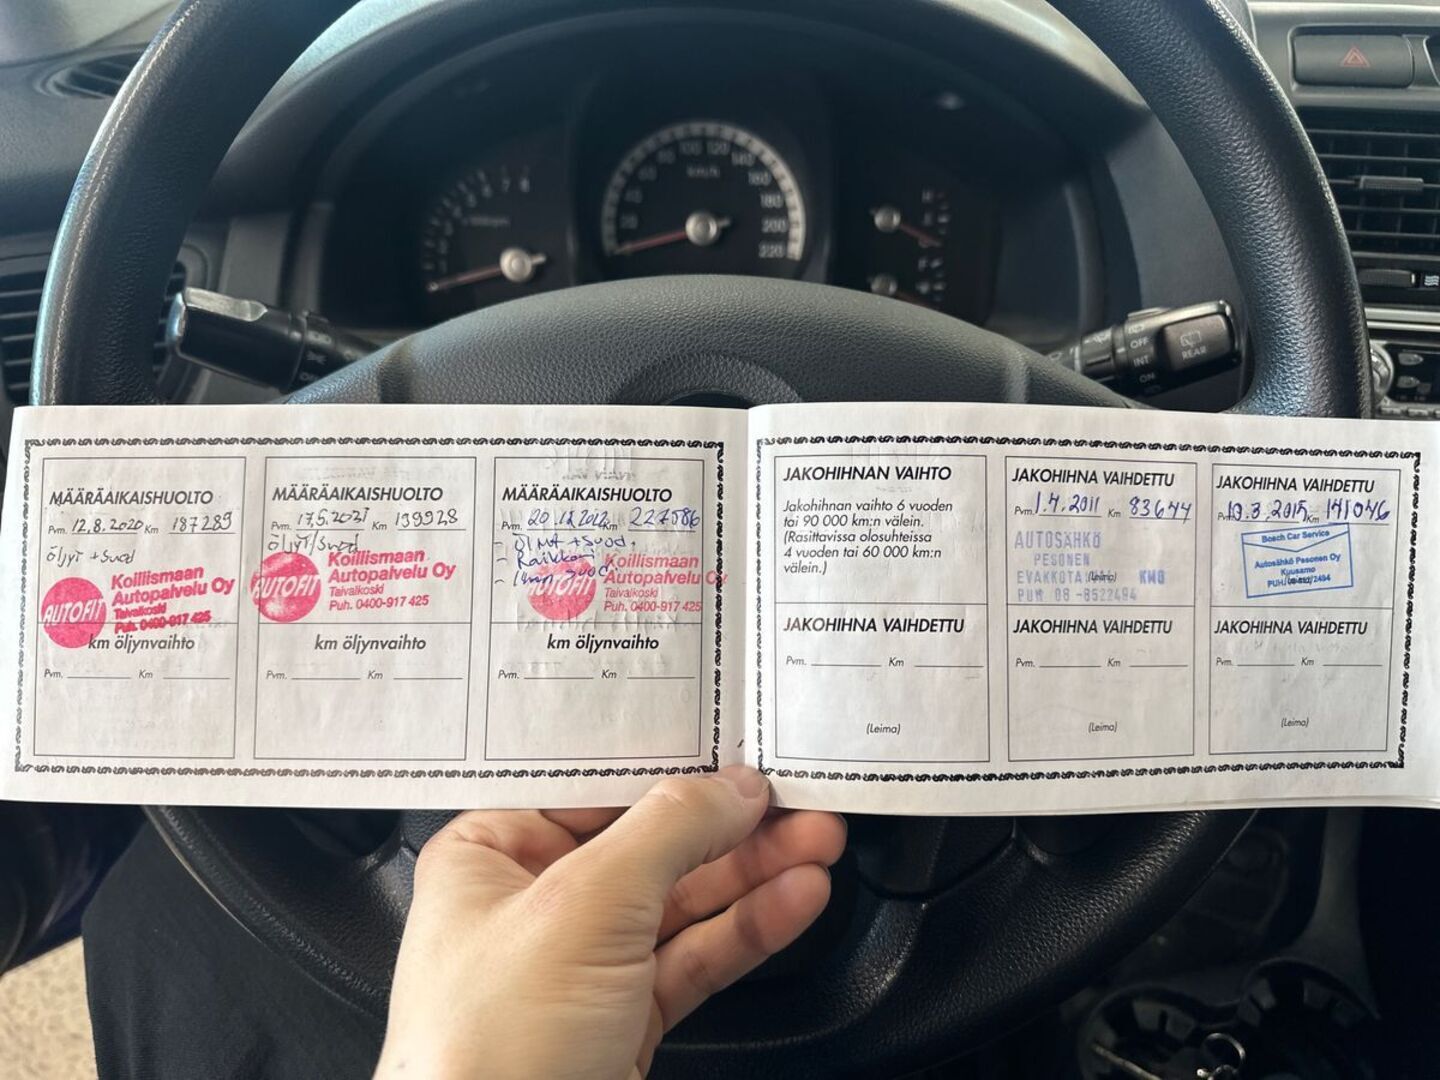 MÄÄRÄAIKAISHUOLTO
Pvm. 12.8.2020 Km 187289
öljyt + suod
AUTOFIT
Koillismaan
Autopalvelu Oy
Taivalkoski
Puh. 0400-917 425
km öljynvaihto
Pvm. Km
MÄÄRÄAIKAISHUOLTO
Pvm. 17.5.2021 Km 199928
öljyt/suod
AUTOFIT
Koillismaan
Autopalvelu Oy
Taivalkoski
Puh. 0400-917 425
km öljynvaihto
Pvm. Km
MÄÄRÄAIKAISHUOLTO
Pvm. 20.12.2022 Km 227586
+ suod.
- Raikkoni
suod.
AUTOFIT
Koillismaan
Autopalvelu Oy
Taivalkoski
Puh. 0400-917 425
km öljynvaihto
Pvm. Km
JAKOHIHNAN VAIHTO
Jakohihnan vaihto 6 vuoden
tai 90 000 km:n välein.
(Rasittavissa olosuhteissa
4 vuoden tai 60 000 km:n
välein.)
JAKOHIHNA VAIHDETTU
Pvm. 1.4.2011 Km 83644
AUTOSÄHKÖ
PESONEN
EVAKKOTA KMO
(Leima)
PUH 08-8522494
JAKOHIHNA VAIHDETTU
Pvm. 10.3.2015 Km 141046
Bosch Car Service
Autosähkö Pesonen Oy
Kuusamo
JAKOHIHNA VAIHDETTU
Pvm. Km
(Leima)
JAKOHIHNA VAIHDETTU
Pvm. Km
(Leima)
JAKOHIHNA VAIHDETTU
Pvm. Km
(Leima)
km/h
100 120
140
160
180
200
220
7 8
H
F
OFF
INT
ON
REAR